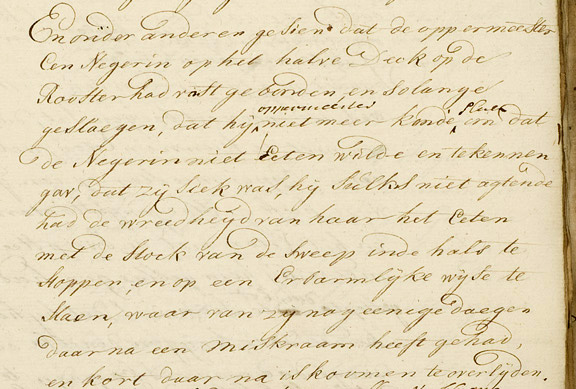 En onder anderen gesien dat de oppermeester
Een Negerin op het halve Deck op de
Rooster had vast gebonden en solange
oppermeester slaen
geslaegen, dat hij niet meer konde, om dat
de Negerin niet Eeten wilde en te kennen
gav, dat zij siek was, hij sulks niet agtende
had de wreedheyd van haar het Eeten
met de stock van de sweep inde hals te
stoppen, en op een Erbarmlijke wijse te
slaen, waar van zij nog eenige daegen
daar na een miskraam heeft gehad,
en kort daar na is koomen te overlijden.